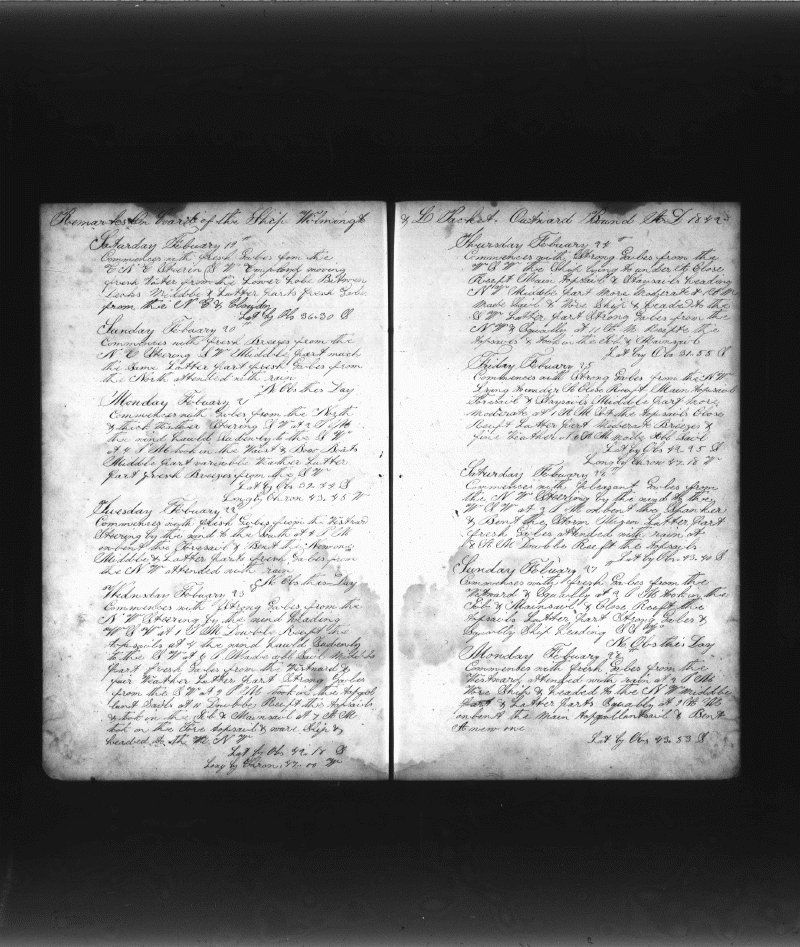 Remarks on Board of the Ship Wilmingt
Saturday Febuary 19
Commences with fresh Gales fom the
E N E Steering S W Employed moving
fresh Water from the Lower hole Between
Decks Middle & Latter parts fresh Gales
from the N E & Cloudy
Lat by Obs 36-30 S
Sunday Febuary 20
Commences with fresh Breezes from the
N E Steering S W Middle part much
the same Latter part fresh Gales from
the North attended with rain
N Obs this Day
Monday Febuary 21
Commences with Gales from the North
& thick Weather Steering S W at 2 P M
the wind hauld sudenly to the S W
at 4 P M took in the Waist & Bow Boats
Middle part variable Weather Latter
part fresh Breezes from the S W
Lat by Obs 39-44 S
Long by Chron 43-45 W
Tuesday Febuary 22
Commences with fresh Gales from the Westrad
Steering by the wind to the South at 4 P M
unbent the Foresail & Bent the New one
Middle & Latter parts fresh Gales from
the N W attended with rain
N Obs this Day
Wednesday Febuary 23
Commences with Strong Gales from the
N W Steering by the wind heading
W S W at 1 P M Double Reeft the
topsails at 4 the wind hauld Sudenly
to the S W at 6 P M made all Sail Middle
part fresh Gales from the Westward &
fair Weather Latter part Strong Gales
from the S W at 9 P M took in the topgal
lant Sails at 11 Double Reeft the topsails
& took in the Jib & Mainsail at 7 A M
took in the Fore topsail & ware Ship &
headed to the N W
Lat by Obs 42-18 S
Long by Chron 47-00 W
& L Packet. Outward Bound A D 1842
Thursday Febuary 24
Commences with Strong Gales from the
W S W the Ship Lying to under a Close
Reeft Main topsail & Staysails heading
N W Middle part More Moderate 1 A M
Made Sail & Ware Ship & headed to the
S W Latter part Strong Gales from the
N W & Squally at 11 A M Reeft the
topsails & took in the Jib & Mainsail
Lat by Obs 41-55 S
Friday Febuary 25
Commences with Strong Gales from the N W
Lying to under A Close Reeft Main topsail
Foresail & Staysails Middle part more
moderate at 1 A M Set the topsails Close
Reeft Latter part moderate Breezes &
fine Weather at 8 A M made All Sail
Lat by Obs 42-25 S
Long by Chron 47-18 W
Saturday Febuary 26
Commences with pleasant Gales from
the N W Steering by the wind to the
W S W at 3 P M unbent the Spanker
& Bent the Storm Mizen Latter part
fresh Gales attended with rain at
8 A M Double Reeft the topsails
Lat by Obs 43-40 S
Sunday Febuary 27
Commences with fresh Gales from the
Westward & Squally at 2 P M took in the
Jib & Mainsail & Close Reeft the
topsails Latter part Strong Gales &
Squally Ship heading S S W
No Obs this Day
Monday Febuary 28
Commences with fresh Gales from the
Westward attended with rain at 2 P M
Ware Ship & headed to the N W Middle
part & Latter parts Squally at 9 A M
unbent the Main topgallantsail & Bent
A new one
Lat by Obs 43-53 S